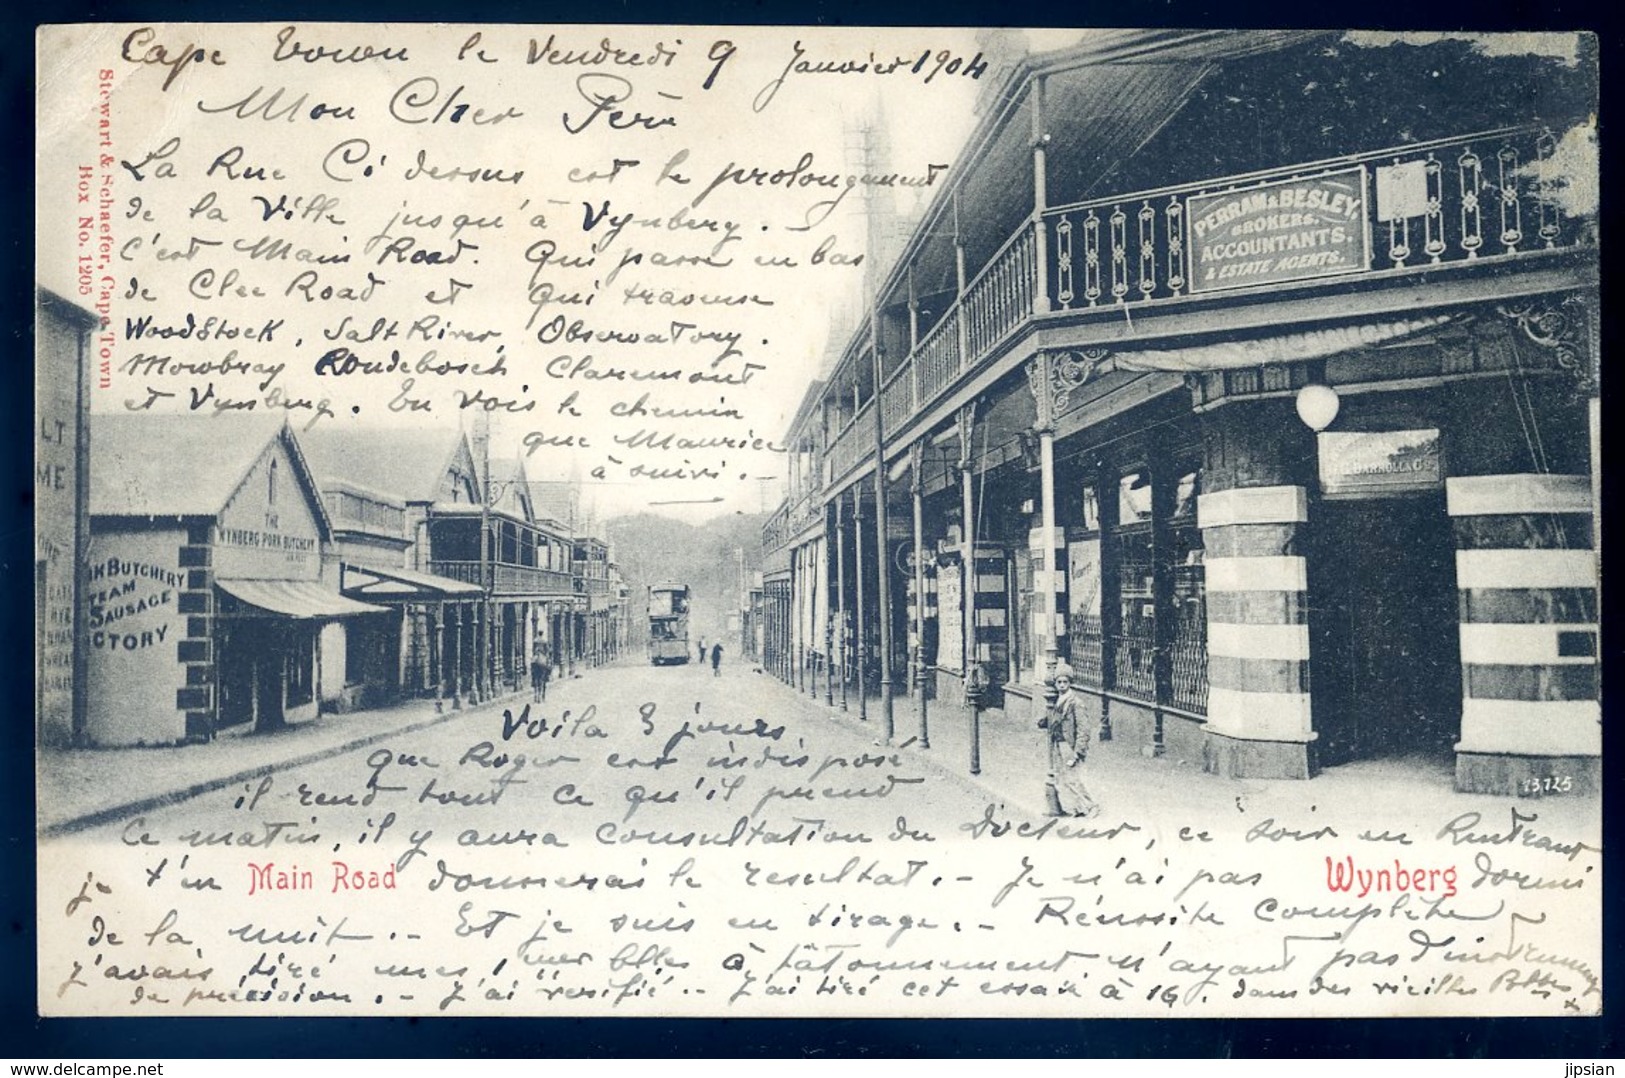 Cape Town le Vendredi 9 Janvier 1904
Mon Cher Père
La Rue Ci dessus est le prolongement
de la Ville jusqu'à Vynberg. -
C'est Main Road. Qui passe en bas
de Clee Road et Qui traverse
WoodStock, Salt River, Observatory.
Mowbray Rondebosch Claremont
et Vynberg. Tu Vois le chemin
que Maurice
à suivi. -
Stewart & Schaefer, Cape Town
Box No. 1205
PERRAM & BESLEY.
BROKERS.
ACCOUNTANTS.
& ESTATE AGENTS.
LT
ME
THE
WYNBERG PORK BUTCHERY
RK BUTCHERY
TEAM
SAUSAGE
CTORY
13725
Voila 3 jours
que Roger est indisposé
il rend tout ce qu'il prend
Ce matin, il y aura consultation du Docteur, ce soir en Rentrant
je t'en donnerai le resultat. - Je n'ai pas dormi
Main Road
Wynberg
de la nuit. - Et je suis en tirage. - Réussite Complète
J'avais tiré mes 1ères Blles à tâtonnement n'ayant pas d'instruments
de précision. - J'ai vérifié. - J'ai tiré cet essai à 16. dans des vieilles Btlles
jipsian
delcampe.net